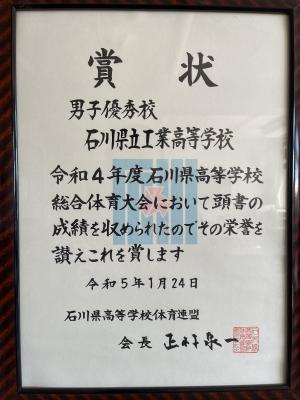 賞状
男子優秀校
石川県立工業高等学校
令和4年度石川県高等学校
総合体育大会において頭書の
成績を収められたのでその栄誉を
讃えこれを賞します
令和5年1月24日
石川県高等学校体育連盟
会長